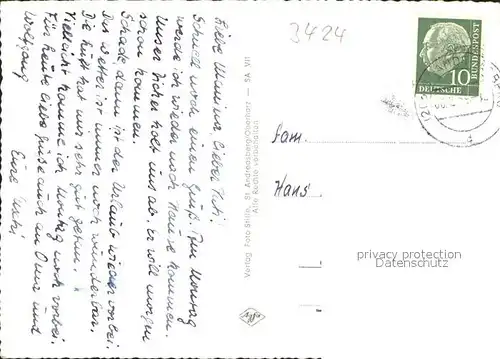 Liebe Mimina, lieber Vati!
Schnell noch einen Gruß. Am Montag
werde ich wieder nach Hause kommen.
Unser Dicker holt uns ab, er will morgen
schon kommen.
Schade, dann ist der Urlaub wieder vorbei.
Das Wetter ist immer noch wunderbar.
Die Luft hat uns sehr gut getan.
Vielleicht komme ich Montag noch vorbei.
Für heute liebe Grüße auch an Oma und
Wolfgang
Eure
3424
Verlag Foto Stille, St. Andreasberg/Oberharz — SA VII
Alle Rechte vorbehalten
DEUTSCHE
BUNDESPOST
10
Fam.
Hans
privacy protection
Datenschutz